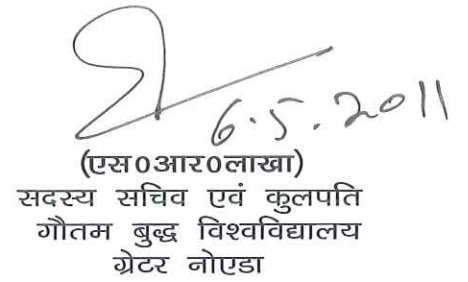 6.5.2011
(एस0आर0लाखा)
सदस्य सचिव एवं कुलपति
गौतम बुद्ध विश्वविद्यालय
ग्रेटर नोएडा